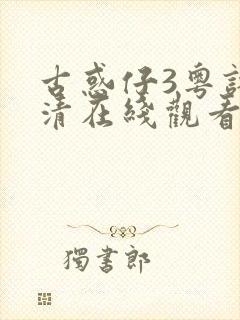 古惑仔3粤語
清在綫觀看
獨書郎